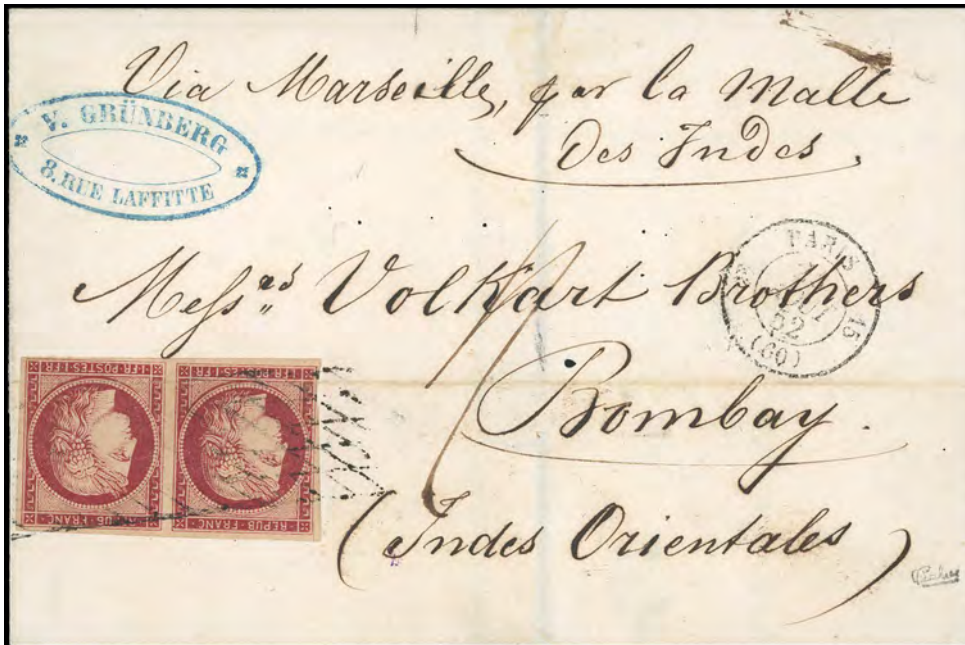 Via Marseille, par la Malle
Des Indes.
V. GRÜNBERG
8. RUE LAFFITTE
PARIS
15
52
(60)
Mess.rs Volkart Brothers
Bombay.
(Indes Orientales)
1.FR.POSTES.1.FR
REPUB.FRANC
REPUB.FRANC